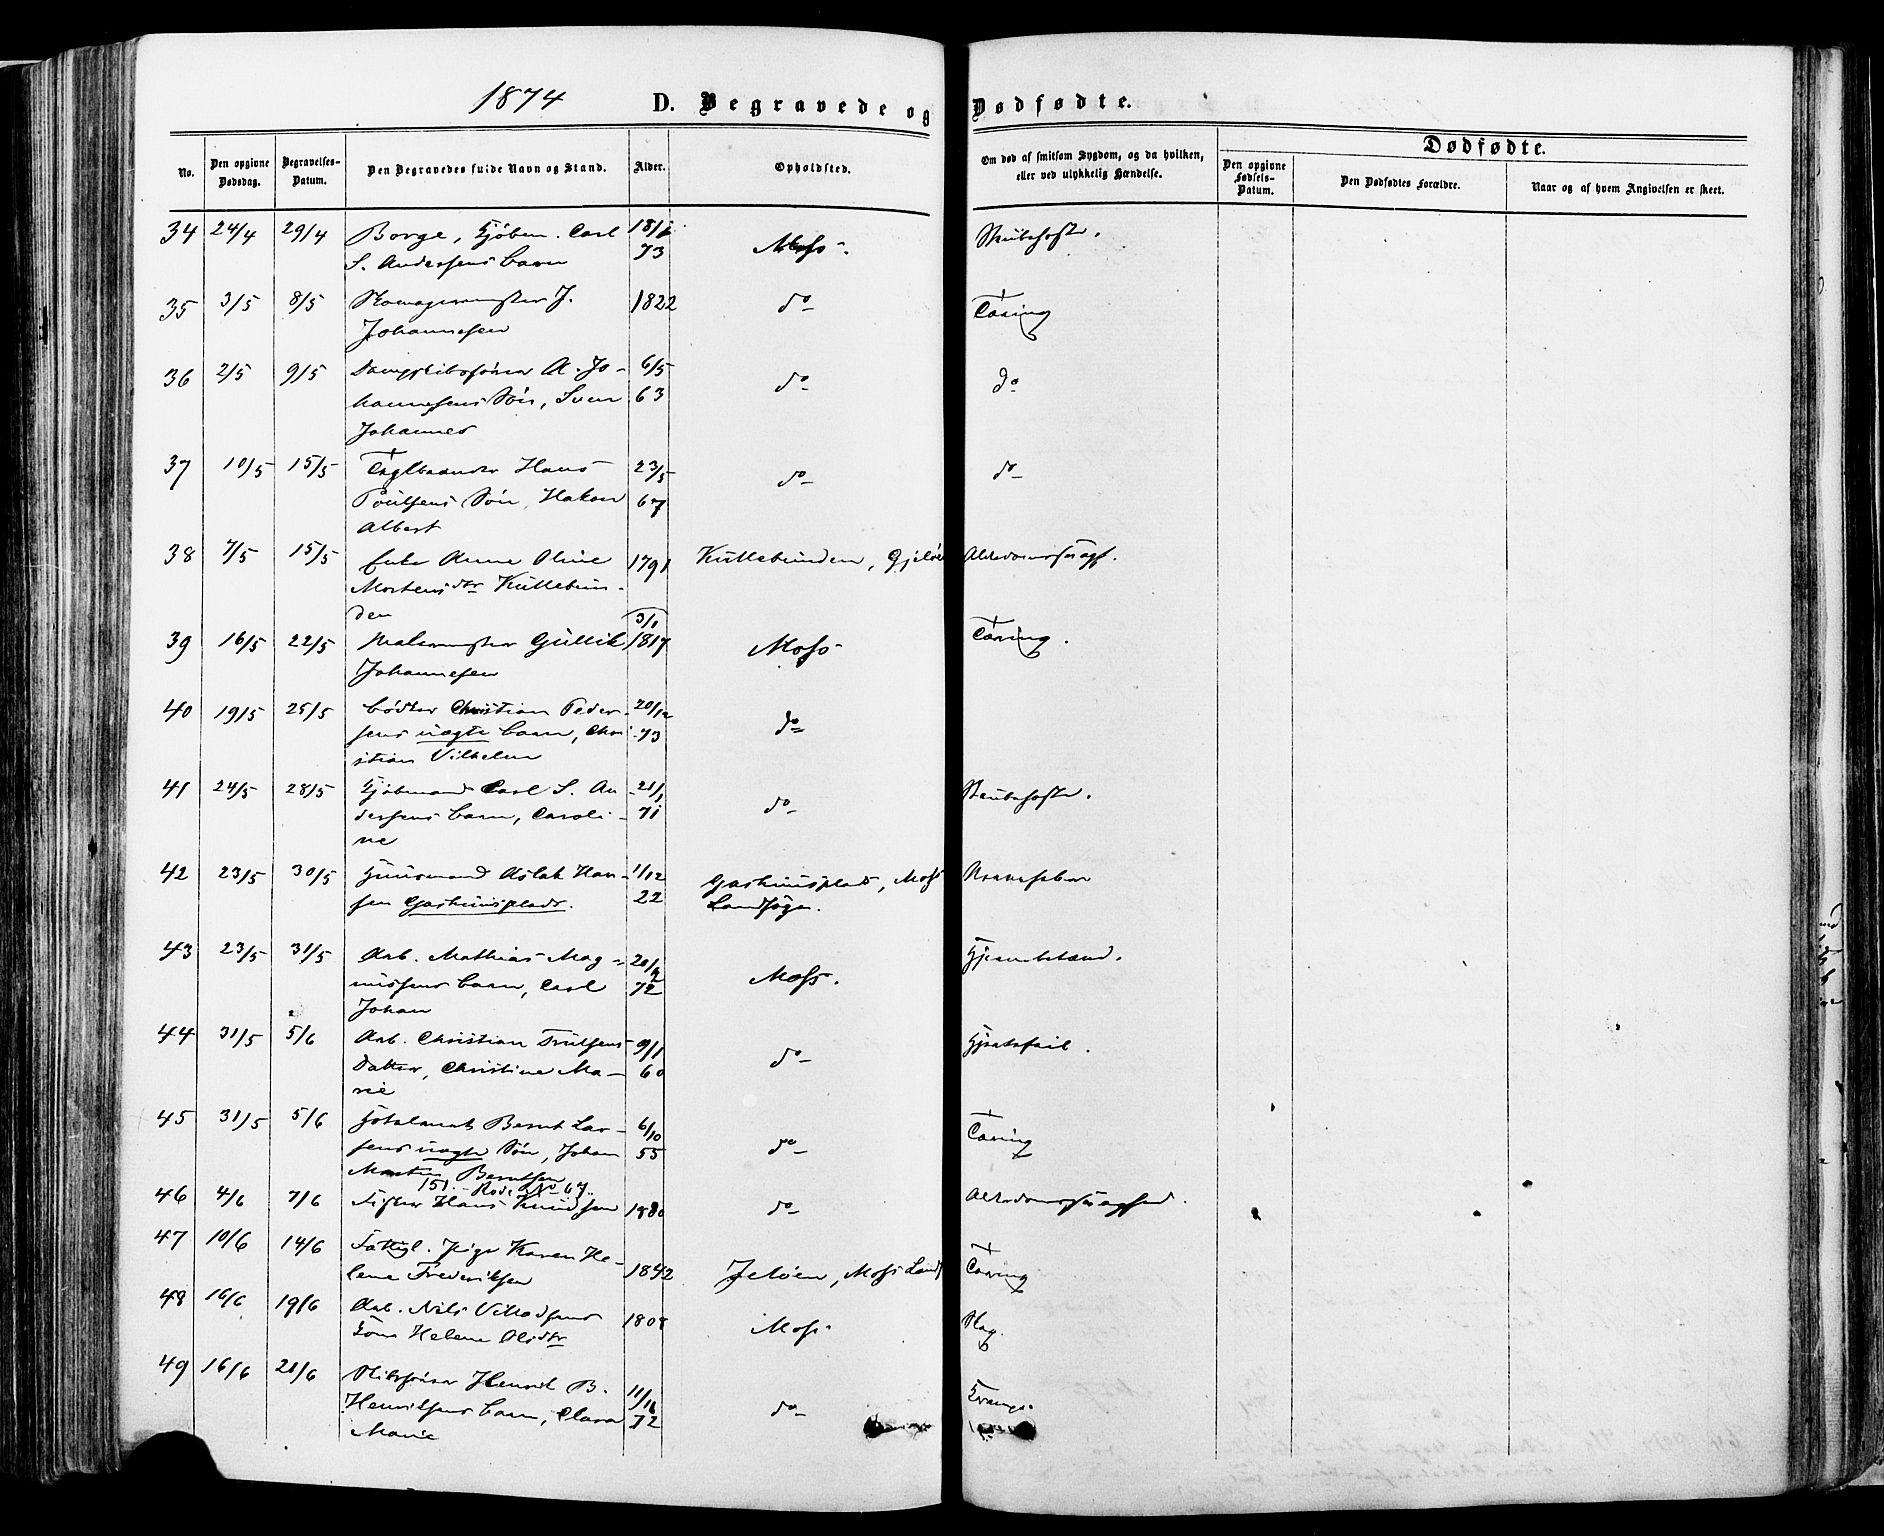 1874 D. Begravede og Dødfødte.
No. Den opgivne Dødsdag. Begravelses-Datum. Den Begravedes fulde Navn og Stand. Alder. Opholdsted. Om død af smitsom Sygdom, og da hvilken, eller ved ulykkelig Hændelse. Dødfødte.
Den opgivne Fødsels-Datum. Den Dødfødtes Forældre. Naar og af hvem Angivelsen er skeet.
34 24/4 29/4 Borge, Kjøbm. Carl 18/ Moss. Strubehoste.
S. Andersens Barn 73
35 3/5 8/5 Skomagermester J. 1822 do Tæring
Johannesen
36 2/5 9/5 Dampskibsfører A. Jo- 6/5 do do
hannesens Søn, Sven 63
Johannes
37 10/5 15/5 Teglbrænder Hans 23/5 do do
Poulsens Søn, Hakon 67
Albert
38 7/5 15/5 Enke Anne Oline 1791 Kullebunden, Gjeløe Alderdomssvagh.
Mortensdtr Kullebun-
den
39 16/5 22/5 Malermester Gullik 3/1 1817 Moss Tæring.
Johannesen
40 19/5 25/5 Bødker Christian Peder- 20/12 do
sens uægte Barn, Chri- 73
stian Vilhelm
41 24/5 28/5 Kjøbmand Carl S. An- 21/1 do Strubehoste.
dersens Barn, Caroli- 71
ne
42 23/5 30/5 Huusmand Aslak Han- 1/12 Gashuusplads, Moss
sen Gashuusplads. 22 Landsogn.
43 23/5 31/5 Arb. Mathias Mag- 20/9 Moss. Hjernebetænd.
nussens Barn, Carl 72
Johan
44 31/5 5/6 Arb. Christian Trulsens 9/1 do Hjertefeil.
Datter, Christine Ma- 60
rie
45 31/5 5/6 Bernt Lar- 6/10 do Tæring
sens uægte Søn, Johan 55
Martin Berntsen
151. Rode No 67.
46 4/6 7/6 Fisker Hans Knudsen do Alderdomssvaghed.
47 10/6 14/6 Fattigl. Pige Karen He- 1842 Jeløen, Moss Land Tæring
lene Frederiksen
48 16/6 19/6 Arb. Nils Villadsens 1808 Moss Slag.
Kone Helene Olsdtr
49 16/6 21/6 Skibsfører Henrik B. 11/11 do Krampe.
Henriksens Barn, Clara 72
Marie